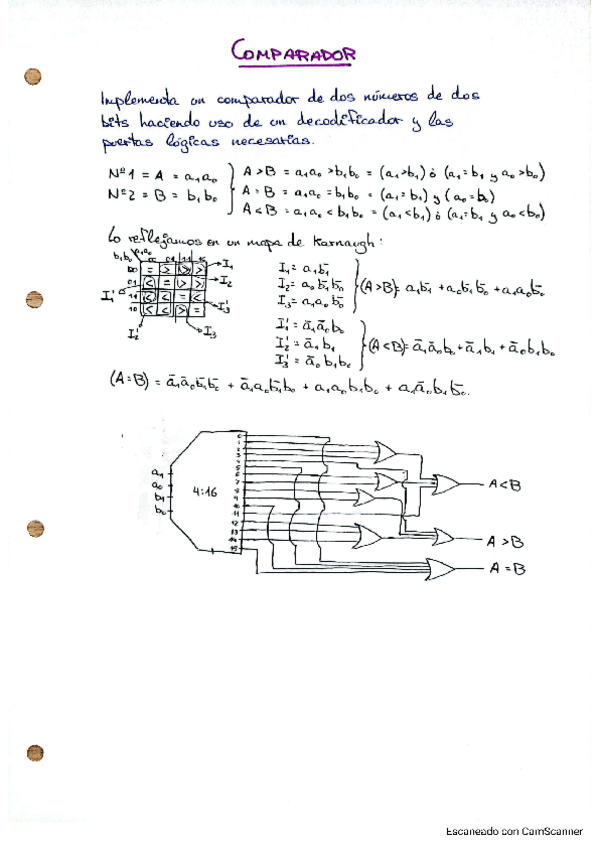 COMPARADOR
Implementa un comparador de dos números de dos
bits haciendo uso de un decodificador y las
puertas lógicas necesarias.
Nº1 = A = a₁a₀ } A > B = a₁a₀ > b₁b₀ = (a₁>b₁) ó (a₁=b₁ y a₀>b₀)
Nº2 = B = b₁b₀ A = B = a₁a₀ = b₁b₀ = (a₁=b₁) y (a₀=b₀)
A < B = a₁a₀ < b₁b₀ = (a₁<b₁) ó (a₁=b₁ y a₀<b₀)
Lo reflejamos en un mapa de Karnaugh:
b₁b₀ a₁a₀ 00 01 11 10
00 = > > > I₁
01 < = > > I₂
I₁' 11 < < = < I₃'
10 < < > =
I₂' I₃
I₁ = a₁b̄₁
I₂ = a₀b̄₁b̄₀ } (A>B) = a₁b̄₁ + a₀b̄₁b̄₀ + a₁a₀b̄₀
I₃ = a₁a₀b̄₀
I₁' = ā₁ā₀b₀
I₂' = ā₁b₁ } (A<B) = ā₁ā₀b₀ + ā₁b₁ + ā₀b₁b₀
I₃' = ā₀b₁b₀
(A=B) = ā₁ā₀b̄₁b̄₀ + ā₁a₀b̄₁b₀ + a₁a₀b₁b₀ + a₁ā₀b₁b̄₀.
a₁
a₀
b₁
b₀
4:16
0
1
2
3
4
5
6
7
8
9
10
11
12
13
14
15
A<B
A>B
A=B
Escaneado con CamScanner